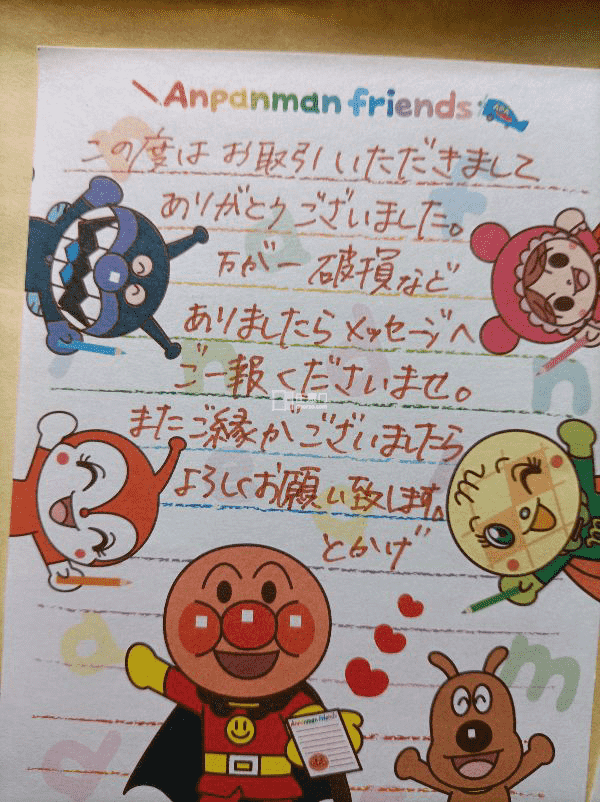 Anpanman friends
この度は お取引いただきまして
ありがとうございました。
万が一 破損など
ありましたら メッセージへ
ご一報くださいませ。
またご縁がございましたら
よろしくお願い致します。
とかげ
Anpanman friends